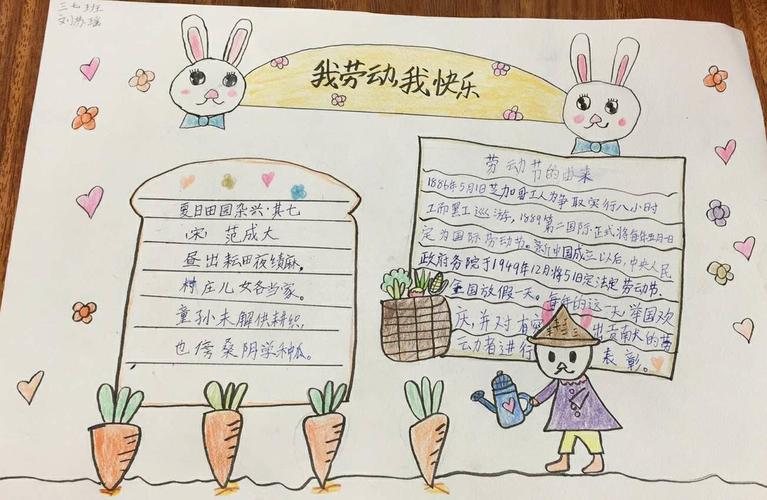 三七班
刘苏瑶
我劳动,我快乐
夏日田园杂兴·其七
宋 范成大
昼出耘田夜绩麻,
村庄儿女各当家。
童孙未解供耕织,
也傍桑阴学种瓜。
劳动节的由来
1886年5月1日芝加哥工人为争取实行八小时
工而罢工巡游,1889第二国际正式将每年五月一日
定为国际劳动节。新中国成立以后,中央人民
政府务院于1949年12月将51日定法定劳动节.
全国放假一天。每年的这一天,举国欢
庆,并对有 出贡献大的劳
动者进行 表彰。